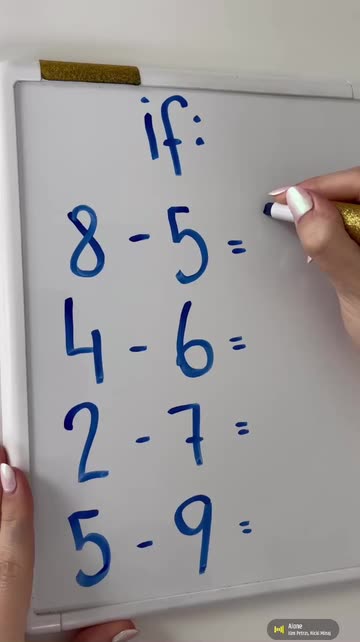 if:
8 - 5 =
4 - 6 =
2 - 7 =
5 - 9 =
Alone
Kim Petras, Nicki Minaj